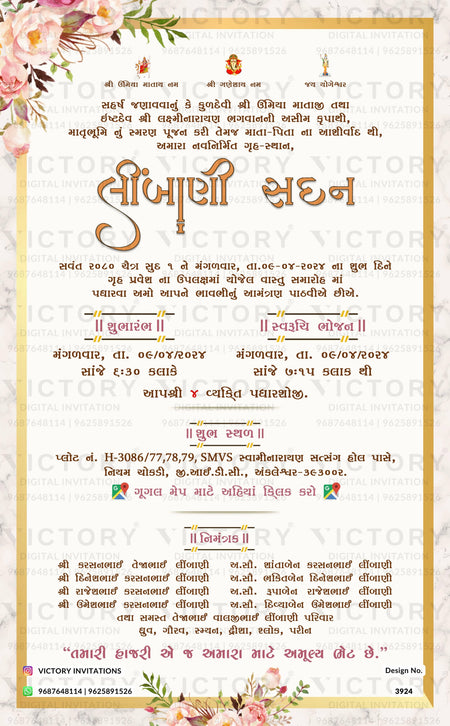 VICTORY
DIGITAL INVITATION
9687648114 | 9625891526
શ્રી ઉમિયા માતાય નમ
શ્રી ગણેશાય નમ
જય યોગેશ્વર
સહર્ષ જણાવવાનું કે કુળદેવી શ્રી ઉમિયા માતાજી તથા
ઈષ્ટદેવ શ્રી લક્ષ્મીનારાયણ ભગવાનની અસીમ કૃપાથી,
માતૃભૂમિ નું સ્મરણ પૂજન કરી તેમજ માતા-પિતા ના આશીર્વાદ થી,
અમારા નવનિર્મિત ગૃહ-સ્થાન,
લીંબાણી સદન
સવંત ૨૦૮૦ ચૈત્ર સુદ ૧ ને મંગળવાર, તા.૦૯-૦૪-૨૦૨૪ ના શુભ દિને
ગૃહ પ્રવેશ ના ઉપલક્ષમાં યોજેલ વાસ્તુ સમારોહ માં
પધારવા અમો આપને ભાવભીનું આમંત્રણ પાઠવીએ છીએ.
|| શુભારંભ ||
મંગળવાર, તા. ૦૯/૦૪/૨૦૨૪
સાંજે ૬:૩૦ કલાકે
|| સ્વરૂચિ ભોજન ||
મંગળવાર, તા. ૦૯/૦૪/૨૦૨૪
સાંજે ૭:૧૫ કલાક થી
આપશ્રી ૪ વ્યક્તિ પધારશોજી.
|| શુભ સ્થળ ||
પ્લોટ નં. H-3086/77,78,79, SMVS સ્વામીનારાયણ સત્સંગ હોલ પાસે,
નિયમ ચોકડી, જી.આઈ.ડી.સી., અંકલેશ્વર-૩૯૩૦૦૨.
ગૂગલ મેપ માટે અહિયાં ક્લિક કરો
|| નિમંત્રક ||
શ્રી કરસનભાઈ તેજાભાઈ લીંબાણી
શ્રી દિનેશભાઈ કરસનભાઈ લીંબાણી
શ્રી રાજેશભાઈ કરસનભાઈ લીંબાણી
શ્રી ઉમેશભાઈ કરસનભાઈ લીંબાણી
અ.સૌ. શાંતાબેન કરસનભાઈ લીંબાણી
અ.સૌ. ભક્તિબેન દિનેશભાઈ લીંબાણી
અ.સૌ. રૂપાબેન રાજેશભાઈ લીંબાણી
અ.સૌ. દિવ્યાબેન ઉમેશભાઈ લીંબાણી
તથા સમસ્ત તેજાભાઈ વાલજીભાઈ લીંબાણી પરિવાર
ધ્રુવ, ગૌરવ, સ્મયન, દ્રીશા, શ્લોક, પરીન
“તમારી હાજરી એ જ અમારા માટે અમૂલ્ય ભેટ છે.”
VICTORY INVITATIONS
9687648114 | 9625891526
Design No.
3924